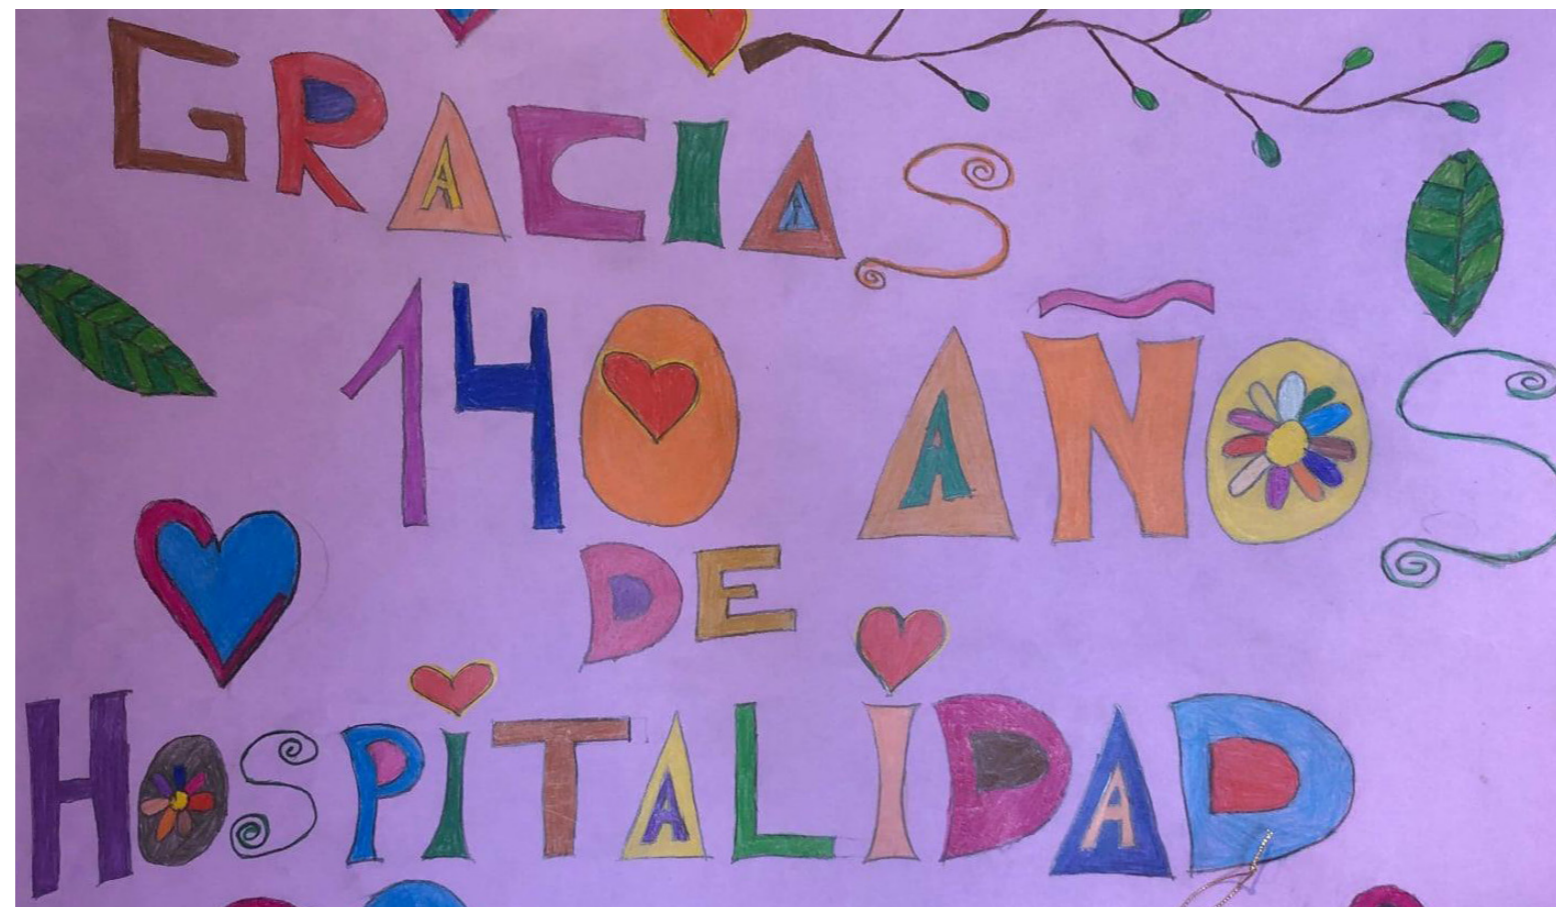 GRACIAS
140 AÑOS
DE
HOSPITALIDAD